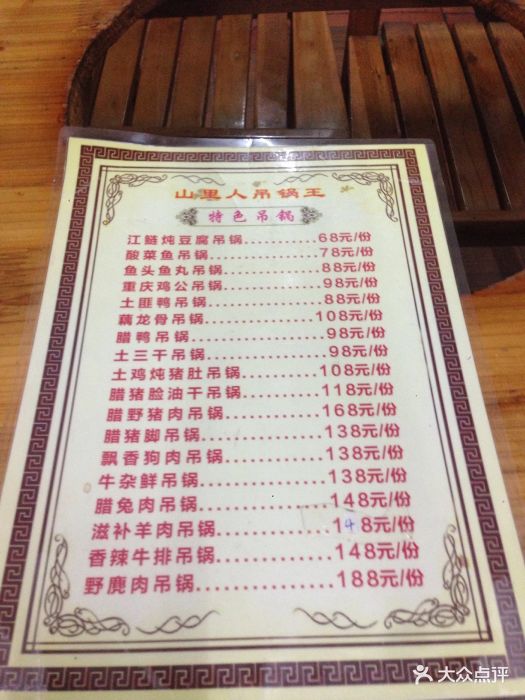 山里人吊锅王
特色吊锅
江鲢炖豆腐吊锅..........68元/份
酸菜鱼吊锅..............78元/份
鱼头鱼丸吊锅............88元/份
重庆鸡公吊锅............98元/份
土匪鸭吊锅..............88元/份
藕龙骨吊锅.............108元/份
腊鸭吊锅................98元/份
土三干吊锅..............98元/份
土鸡炖猪肚吊锅.........108元/份
腊猪脸油干吊锅.........118元/份
腊野猪肉吊锅...........168元/份
腊猪脚吊锅.............138元/份
飘香狗肉吊锅...........138元/份
牛杂鲜吊锅.............138元/份
腊兔肉吊锅.............148元/份
滋补羊肉吊锅...........148元/份
香辣牛排吊锅...........148元/份
野麂肉吊锅.............188元/份
大众点评